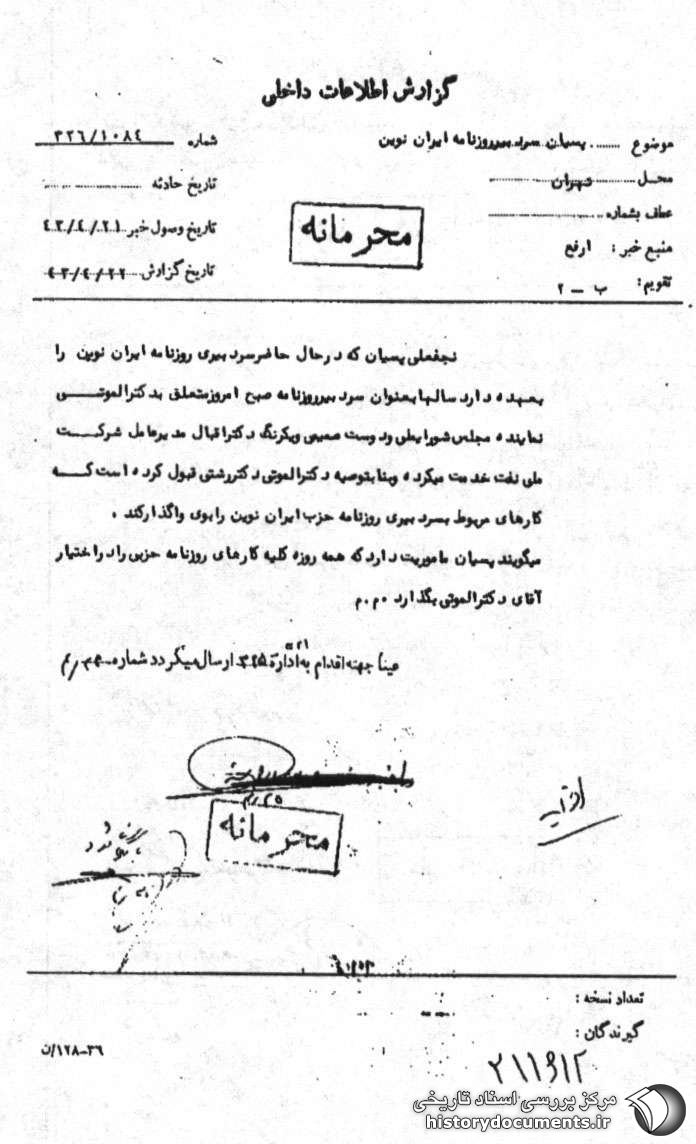 گزارش اطلاعات داخلی
موضوع ........ پسیان سرد بیرروزنامه ایران نوین
شماره ۳۲۶/۱۰۸٤
محل ........ تهران
تاریخ حادثه
عطف بشماره
تاریخ وصول خبر ٤۳/٤/۲۱
منبع خبر : ارفع
تاریخ گزارش ٤۳/٤/۲۲
تقویم : ب – ۲
محرمانه
نجفعلی پسیان که در حال حاضر سرد بیری روزنامه ایران نوین را
بعهده دارد سالها بعنوان سرد بیرروزنامه صبح امروز متعلق بدکترالموتـــی
نماینده مجلس شورایملی ود وست صمیمی ویکرنگ دکتراقبال مدیرعامل شرکــت
ملی نفت خدمت میکرده وبنا بتوصیه دکترالموتی دکتررشتی قبول کرده است کـــه
کارهای مربوط بسرد بیری روزنامه حزب ایران نوین رابوی واگذارکند .
میگویند پسیان ماموریت دارد که همه روزه کلیه کارهای روزنامه حزبی راد راختیار
آقای دکترالموتی بگذارد .م.م
عیناً جهت اقدام به اداره ۳۲۵ ارسال میگردد شماره
محرمانه
تعداد نسخه :
گیرندگان :
۳۶-۱۲۸/ن
مرکز بررسی اسناد تاریخی
historydocuments.ir